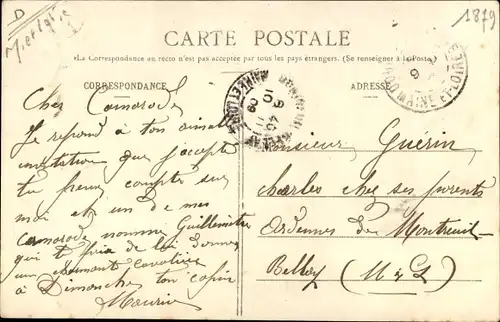 D
M. et Loire
1879
CARTE POSTALE
«La Correspondance au recto n'est pas acceptée par tous les pays étrangers. (Se renseigner à la Poste.)
CORRESPONDANCE
ADRESSE
MAINE ET LOIRE
Cher Camarade
Je repond à ton aimable
invitation que j'accepte
tu peux compte sur
moi et un de mes
camarade nomme
qui te prie de lui donner
une charmante cavalière
à Dimanche ton copin
Maurice
Monsieur Guérin
charles chez ses parents
Ardennes de Montreuil-
Belloy (M & L)